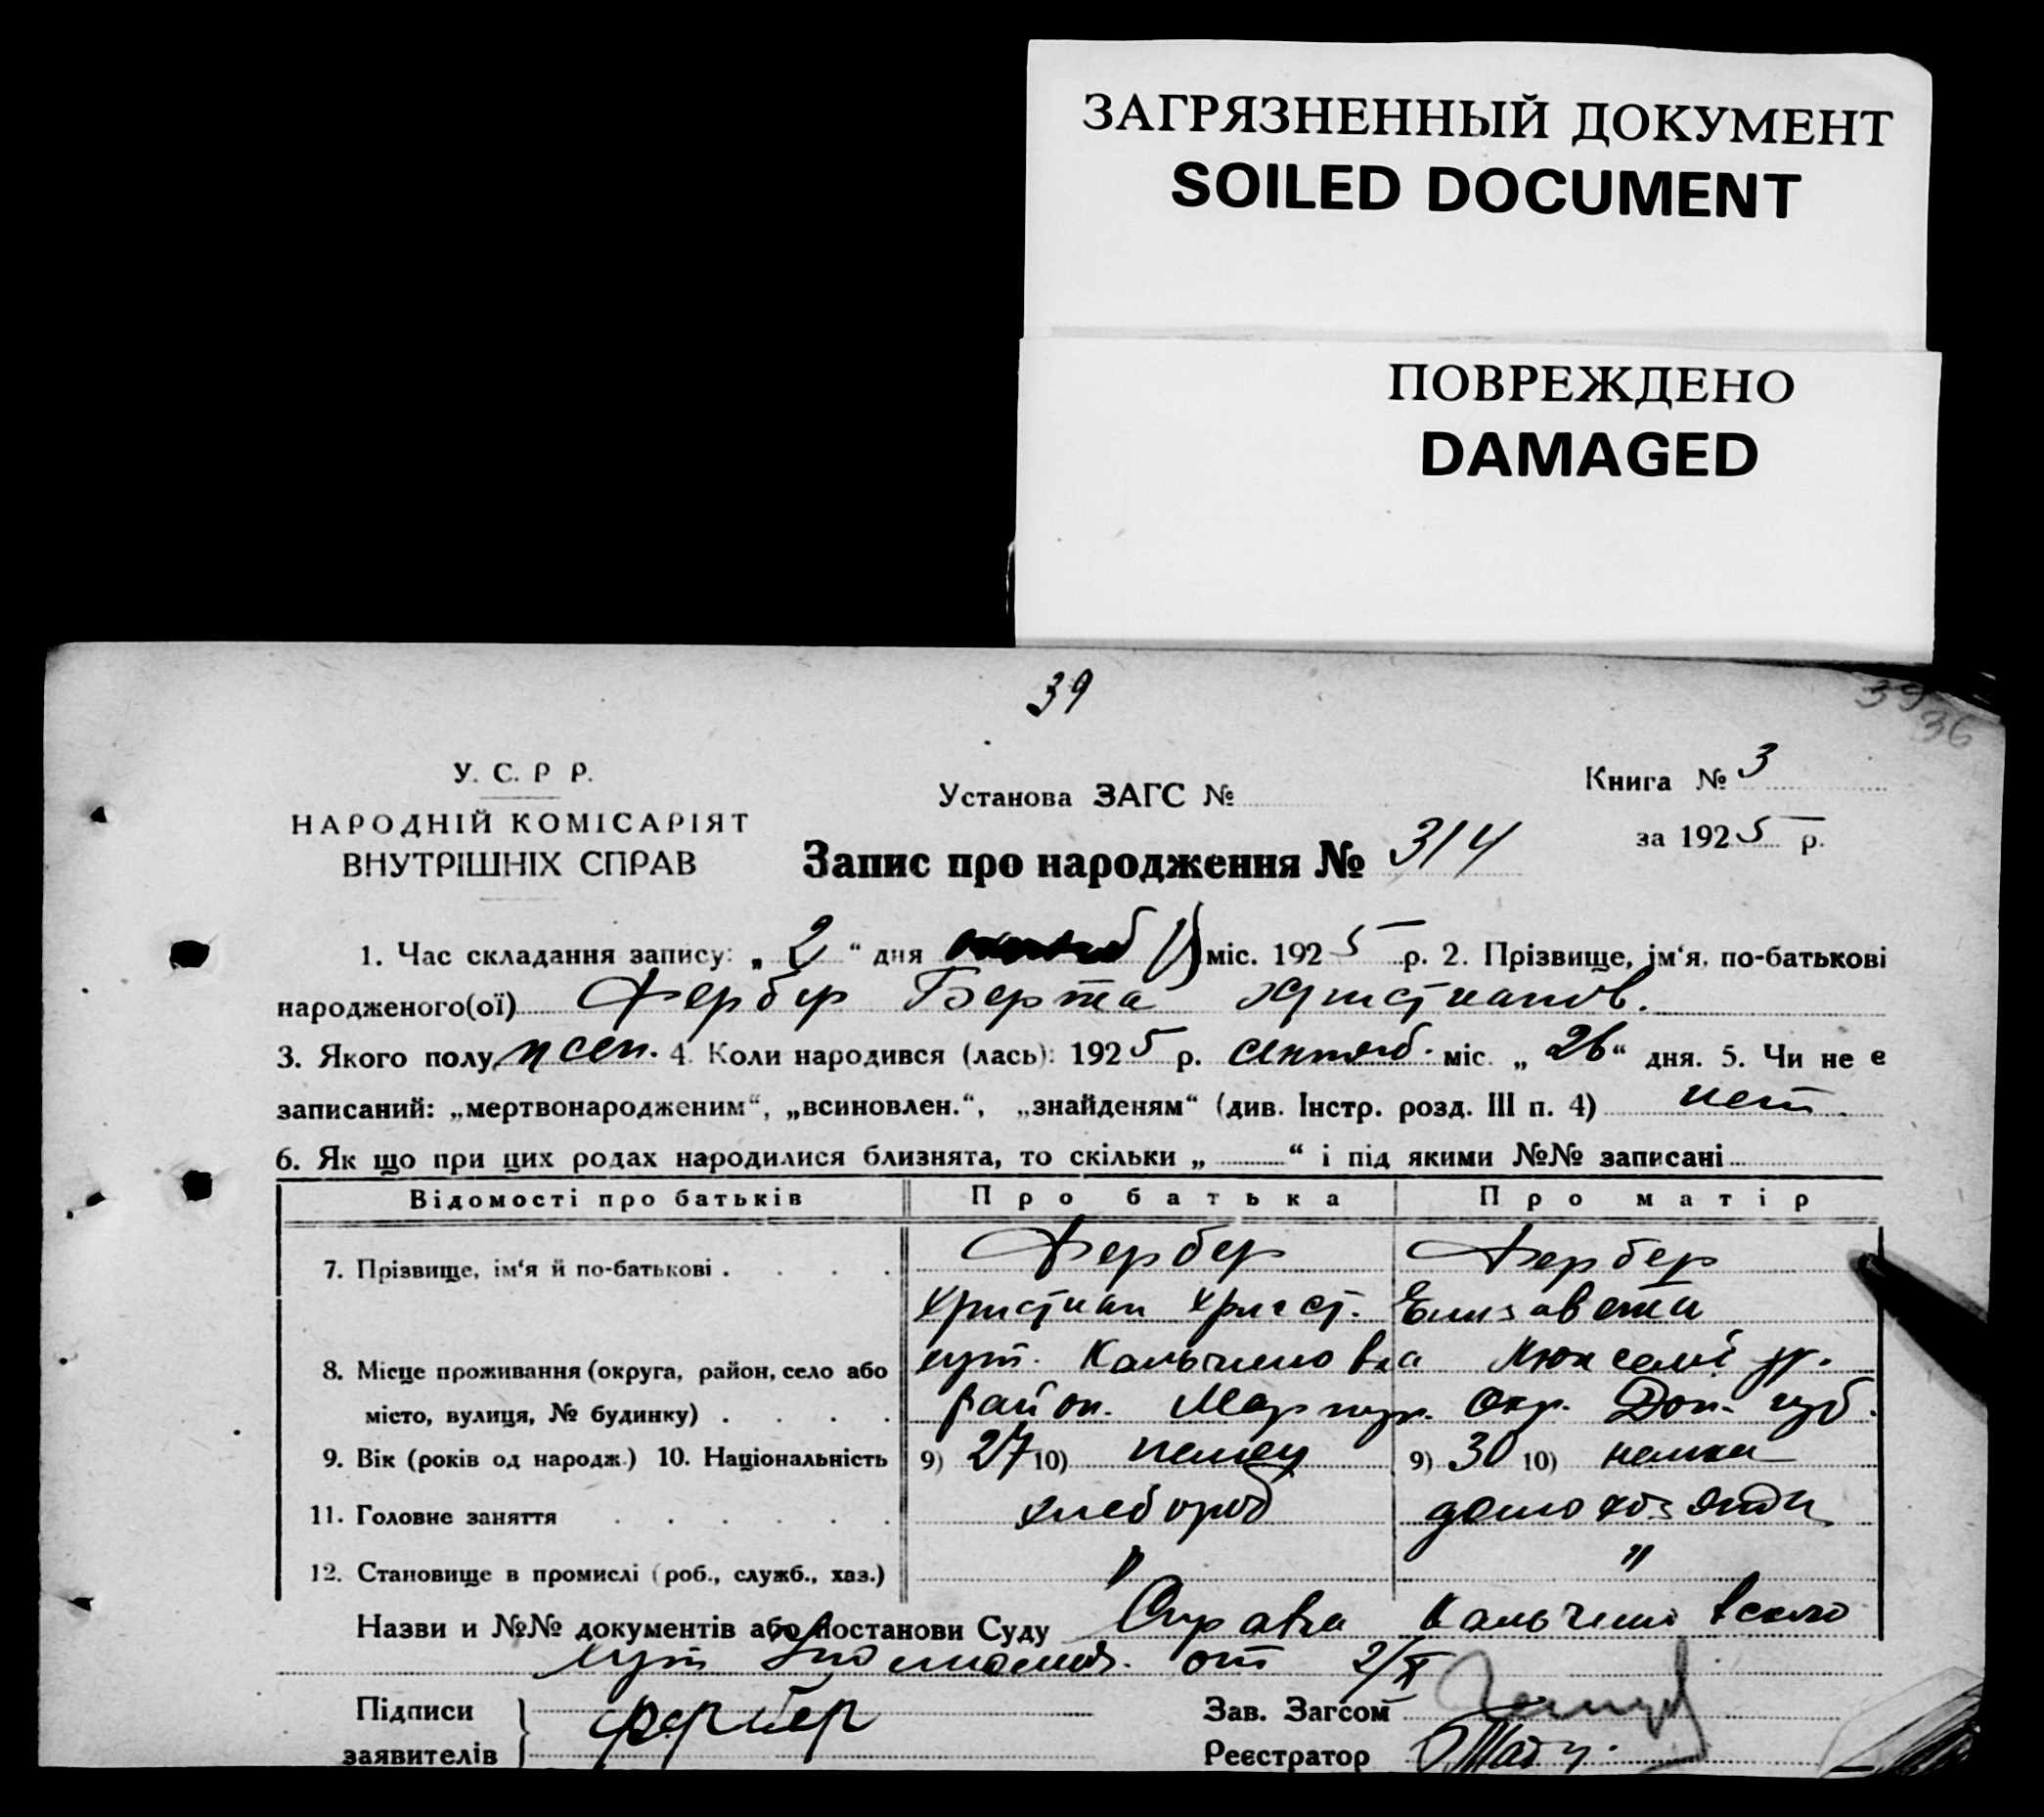 ЗАГРЯЗНЕННЫЙ ДОКУМЕНТ
SOILED DOCUMENT
ПОВРЕЖДЕНО
DAMAGED
39
39
36
У. С. Р Р.
НАРОДНІЙ КОМІСАРІЯТ
ВНУТРІШНІХ СПРАВ
Установа ЗАГС №
Книга № 3
за 1925 р.
Запис про народження № 314
1. Час складання запису: „ 2 “ дня міс. 1925 р. 2. Прізвище, ім‘я, по-батькові
народженого(ої) Фербер Берта Христианов.
3. Якого полу жен. 4. Коли народився (лась): 1925 р. сентяб. міс. „ 26 “ дня. 5. Чи не є
записаний: „мертвонародженим“, „всиновлен.“, „знайденям“ (див. Інстр. розд. III п. 4) нет
6. Як що при цих родах народилися близнята, то скільки „ “ і під якими №№ записані
Відомості про батьків Про батька Про матір
7. Прізвище, ім‘я й по-батькові . . . . Фербер Фербер
Христиан Христ. Елизавета
8. Місце проживання (округа, район, село або хут. Кальчиновка
місто, вулиця, № будинку) . . . . район. Мариуп. Окр. Дон. губ.
9. Вік (років од народж.) 10. Національність 9) 27 10) немец 9) 30 10) немка
11. Головне заняття . . . . . . хлебороб домохоз
12. Становище в промислі (роб., служб., хаз.) " "
Назви и №№ документів або постанови Суду Справка
хут от 2/X
Підписи Фербер
заявителів
Зав. Загсом
Реєстратор